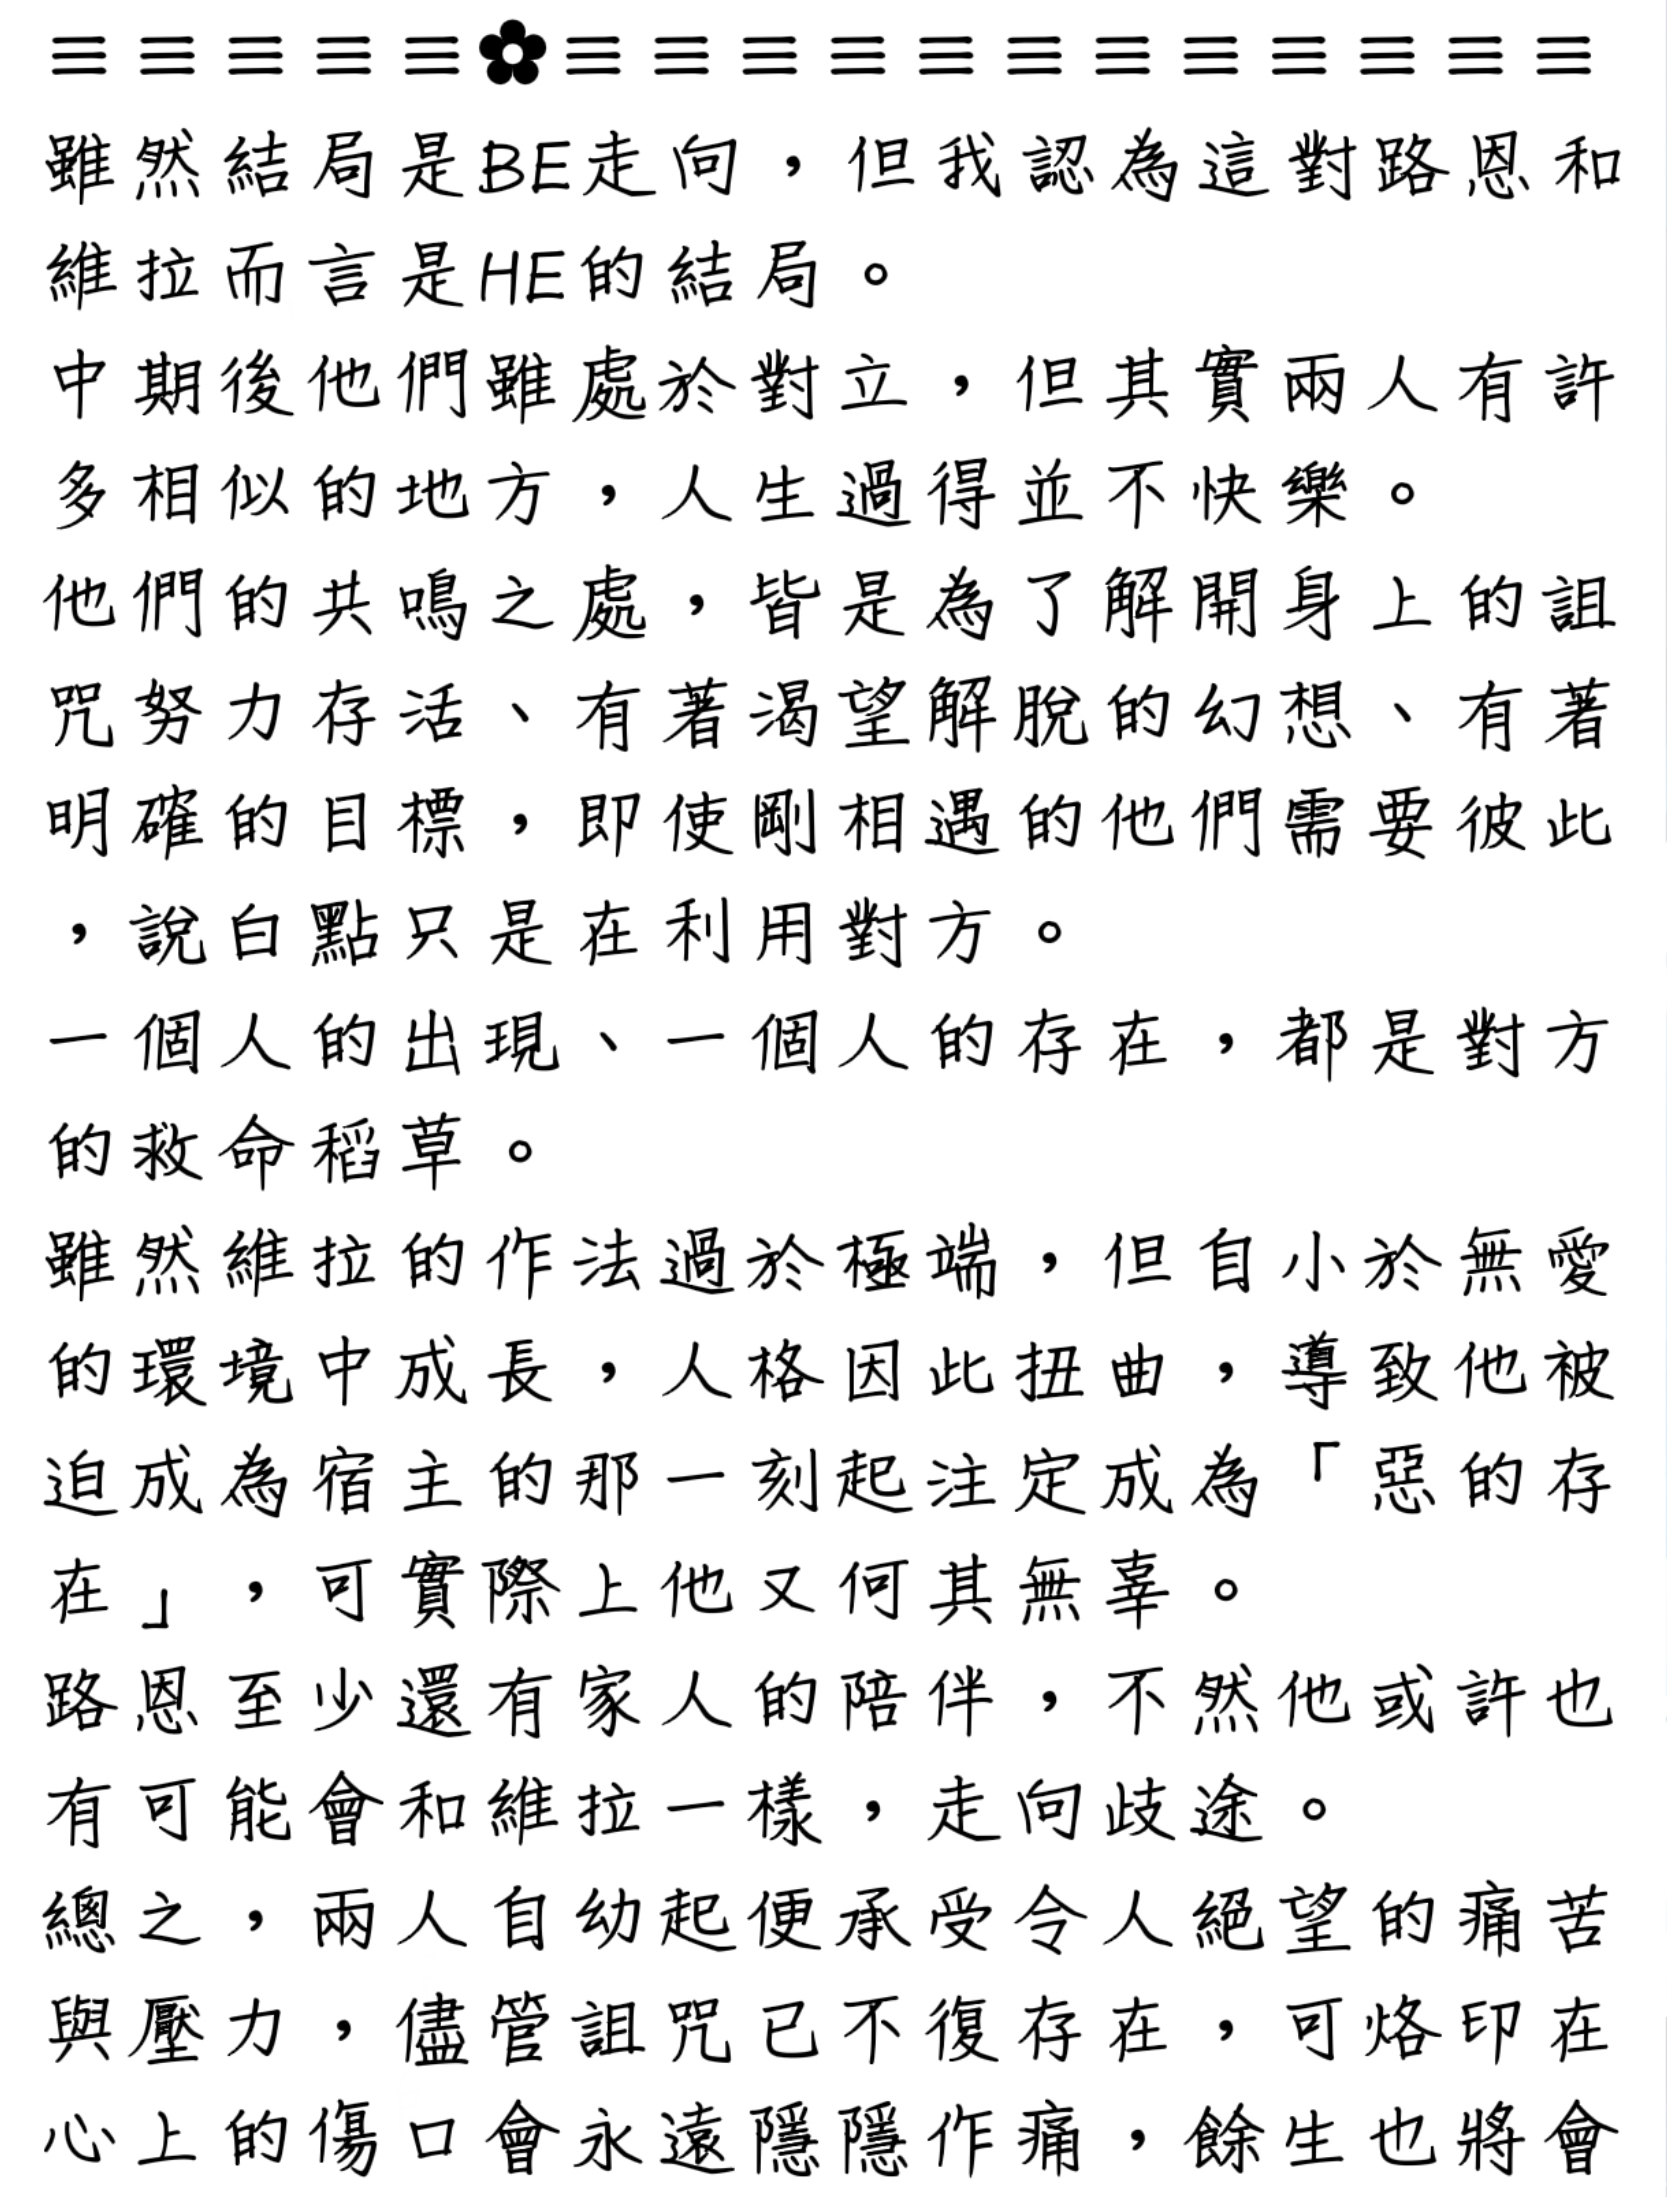 ☰☰☰☰☰✿☰☰☰☰☰☰☰☰☰☰☰☰
雖然結局是BE走向，但我認為這對路恩和
維拉而言是HE的結局。
中期後他們雖處於對立，但其實兩人有許
多相似的地方，人生過得並不快樂。
他們的共鳴之處，皆是為了解開身上的詛
咒努力存活、有著渴望解脫的幻想、有著
明確的目標，即使剛相遇的他們需要彼此
，說白點只是在利用對方。
一個人的出現、一個人的存在，都是對方
的救命稻草。
雖然維拉的作法過於極端，但自小於無愛
的環境中成長，人格因此扭曲，導致他被
迫成為宿主的那一刻起注定成為「惡的存
在」，可實際上他又何其無辜。
路恩至少還有家人的陪伴，不然他或許也
有可能會和維拉一樣，走向歧途。
總之，兩人自幼起便承受令人絕望的痛苦
與壓力，儘管詛咒已不復存在，可烙印在
心上的傷口會永遠隱隱作痛，餘生也將會